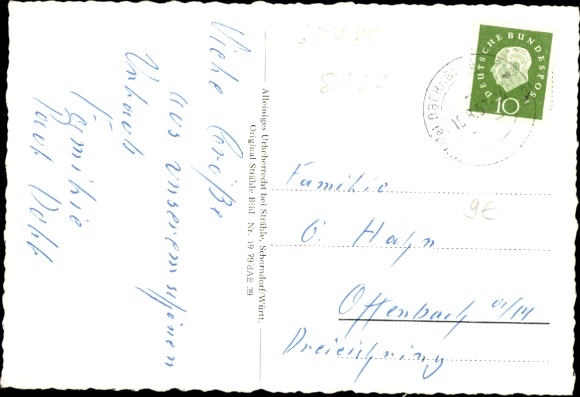 Viele Grüße
aus unserem schönen
Urlaub
Familie
Alleiniges Urheberrecht bei Strähle, Schorndorf/Württ.
Original Strähle Bild Nr. 19 79 dAE 39
DEUTSCHE BUNDESPOST
10
9€
Familie
O. Hahn
Offenbach a/M
Dreieichring